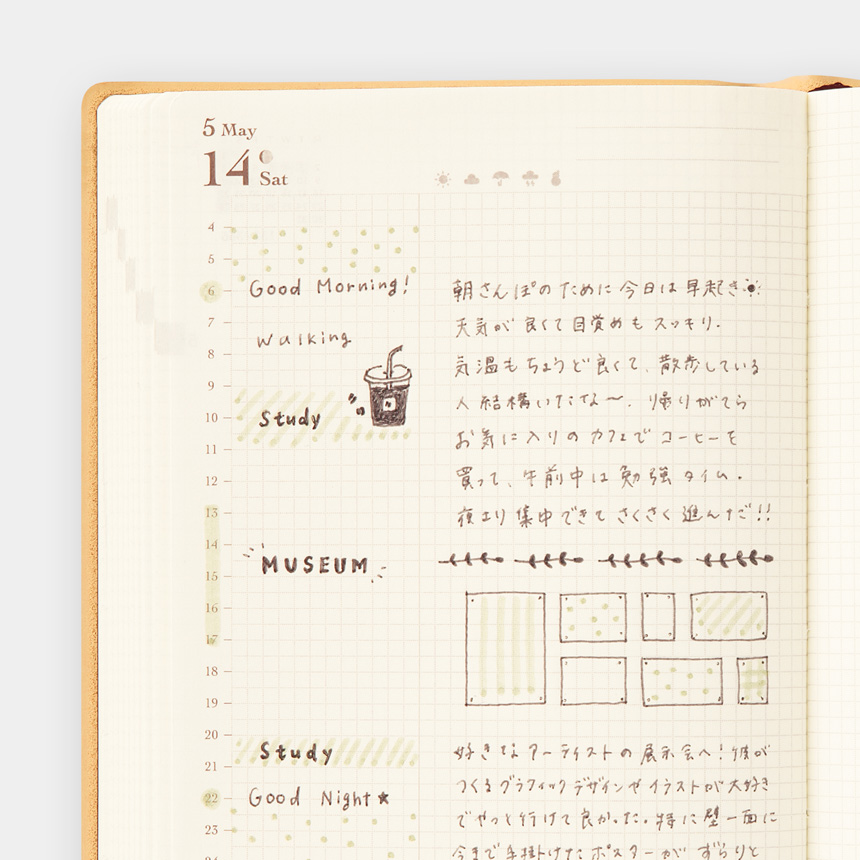 5 May
14 Sat
4
5
6
Good Morning!
7
Walking
8
9
10
Study
11
12
13
14
MUSEUM
15
16
17
18
19
20
Study
21
22
Good Night★
23
朝さんぽのために今日は早起き☀
天気が良くて目覚めもスッキリ.
気温もちょうど良くて、散歩している
人結構いたな〜. 帰りがてら
お気に入りのカフェでコーヒーを
買って、午前中は勉強タイム.
夜より集中できてさくさく進んだ!!
好きなアーティストの展示会へ!彼が
つくるグラフィックデザインやイラストが大好き
でやっと行けて良かった.特に壁一面に
今まで手掛けたポスターがずらりと